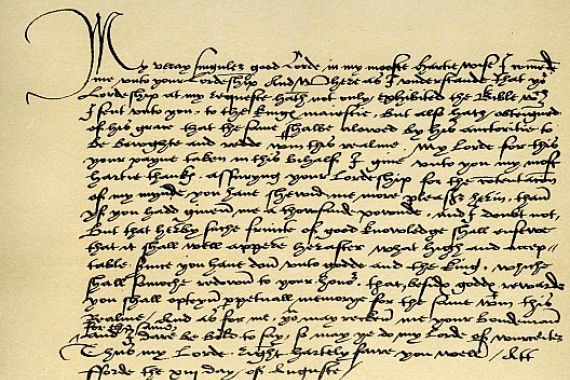 My veray singuler good Lorde in my mooste hartie wise I com̄ende
me unto your Lordeship And Where as I understande that yor
Lordeship at my requeste hath not only exhibited the Bible wch
I sent unto you, to the Kinge maiestie, But also hath opteigned
of his grace that the same shalbe alowed by his auctoritie to
be bowghte and redde wtin this realme, My Lorde for this
your payne taken in this bihalf I give unto you my most
hartie thanks, assuryng your Lordeship for the contentacion
of my mynde you have shewed me more pleasr herin, than
yf you hadd given me a thowsande pownde, And I doubt not,
But that herby suche fruicte of good knowledge shall ensewe
that it shall well appere herafter what high and accep-
table service you have don unto godde and the king, whiche
shall somoche redown to your honor, that, beside godds rewarde
you shall opteyn ppetuall memorye for the same wtin this
Realme, And as for me, yo may reckon me your bondeman
for the same,
And I dare be bold to say, so may ye do my Lorde of worceter
Thus my Lorde right hartely fare you well, Att
fforde the xiij day of Auguste